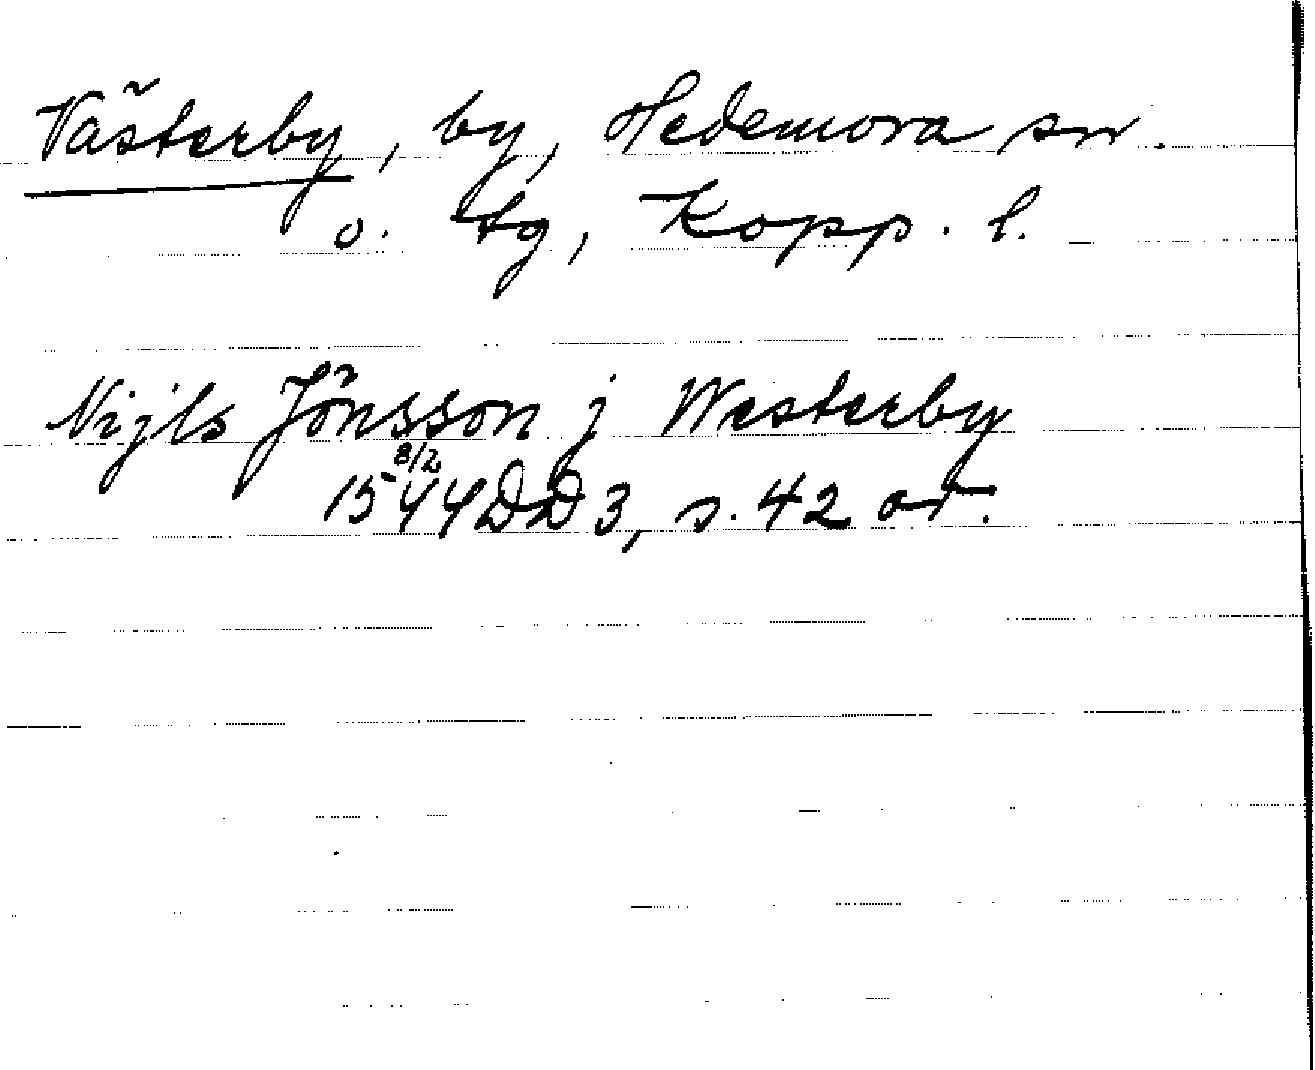 Västerby, by, Hedemora sn.
o. tg, Kopp. l.
Nijls Jönsson j Westerby
8/2
1544 DD 3, s. 42 or.